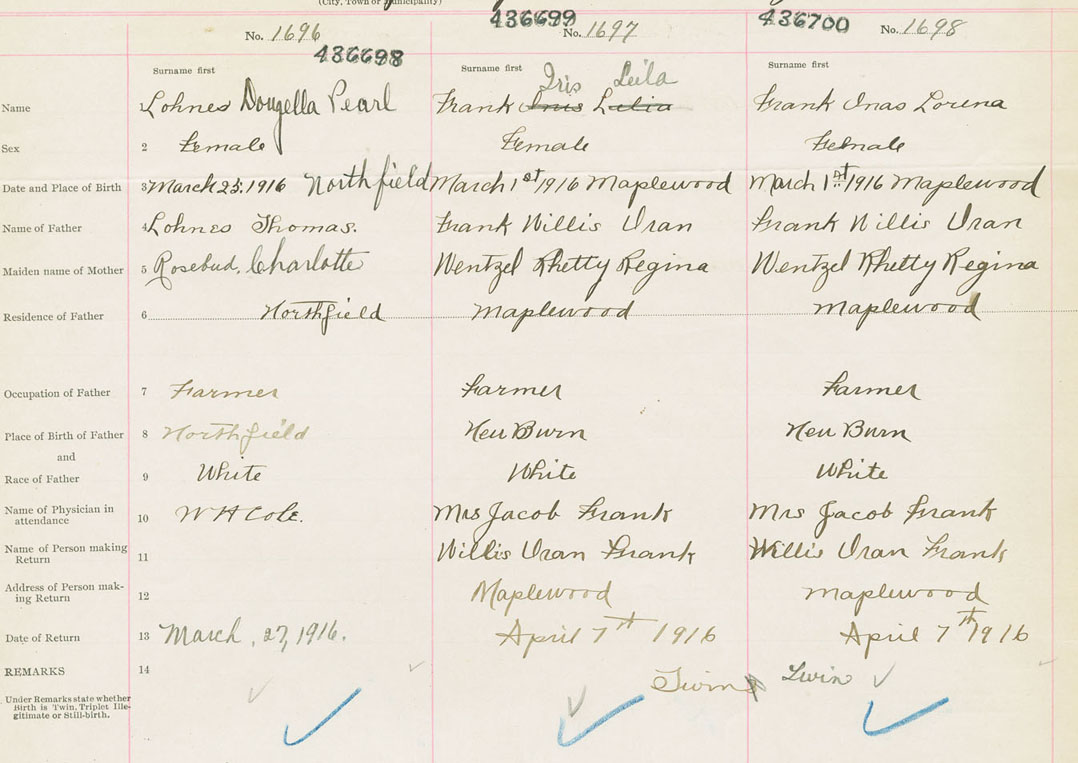 (City, Town or Municipality)
No. 1696 436699 No. 1697 436700 No. 1698
436698
Surname first Surname first Surname first
Iris Leila
Name 1 Lohnes Dougella Pearl Frank Inis Lelia Frank Inas Lorena
Sex 2 Female Female Female
Date and Place of Birth 3 March 25. 1916 Northfield March 1st 1916 Maplewood March 1st 1916 Maplewood
Name of Father 4 Lohnes Thomas. Frank Willis Uran Frank Willis Uran
Maiden name of Mother 5 Rosebud, Charlotte Wentzel Rhetty Regina Wentzel Rhetty Regina
Residence of Father 6 Northfield Maplewood Maplewood
Occupation of Father 7 Farmer Farmer Farmer
Place of Birth of Father 8 Northfield New Burn New Burn
and
Race of Father 9 White White White
Name of Physician in
attendance 10 W H Cole. Mrs Jacob Frank Mrs Jacob Frank
Name of Person making
Return 11 Willis Uran Frank Willis Uran Frank
Address of Person mak-
ing Return 12 Maplewood Maplewood
Date of Return 13 March, 27, 1916. April 7th 1916 April 7th 1916
REMARKS 14 Twin Twin
Under Remarks state whether
Birth is Twin, Triplet Ille-
gitimate or Still-birth.